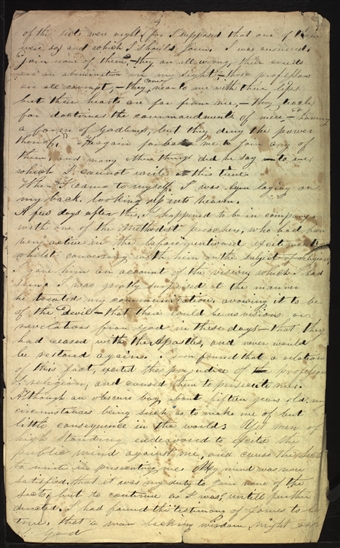 of the sects were right, for I supposed that one of them
were so; and which I should join. I was answered
join none of them; they are all wrong, their creeds
were an abomination in my sight; those professors
are all corrupt, they near to me with their lips
but their hearts are far from me, they teach
for doctrines the commandments of men, having
a form of Godliness, but they deny the power
thereof." He again forbade me to join any of
them, and many other things did he say to me
which I cannot write at this time.
When I came to myself, I was laying on
my back, looking up into heaven.
A few days after this, I happened to be in company
with one of the Methodist preachers, who had been
very active in the before mentioned excitement
whilst conversing with him on the subject of religion
I gave him an account of the vision which I had
seen. I was greatly surprised at the manner
he treated my communication, avowing it to be
of the devil that there could be no visions or
revelations from God in these days that they
had ceased with the apostles, and never would
be restored again. I soon found that a relation
of this fact, excited the prejudice of professors
of religion, and caused them to persecute me.
Although an obscure boy, about fifteen years old, and
circumstances being such as to make me of but
little consequence in the world: Yet men of
high standing, endeavored to excite the
public mind against me, and cause the
to unite in persecuting me. My mind was now
satisfied, that it was my duty to join none of the
sects, but to continue as I was, untill further
directed. I had found the testimony of James to be
true, that a man lacking wisdom might ask
God